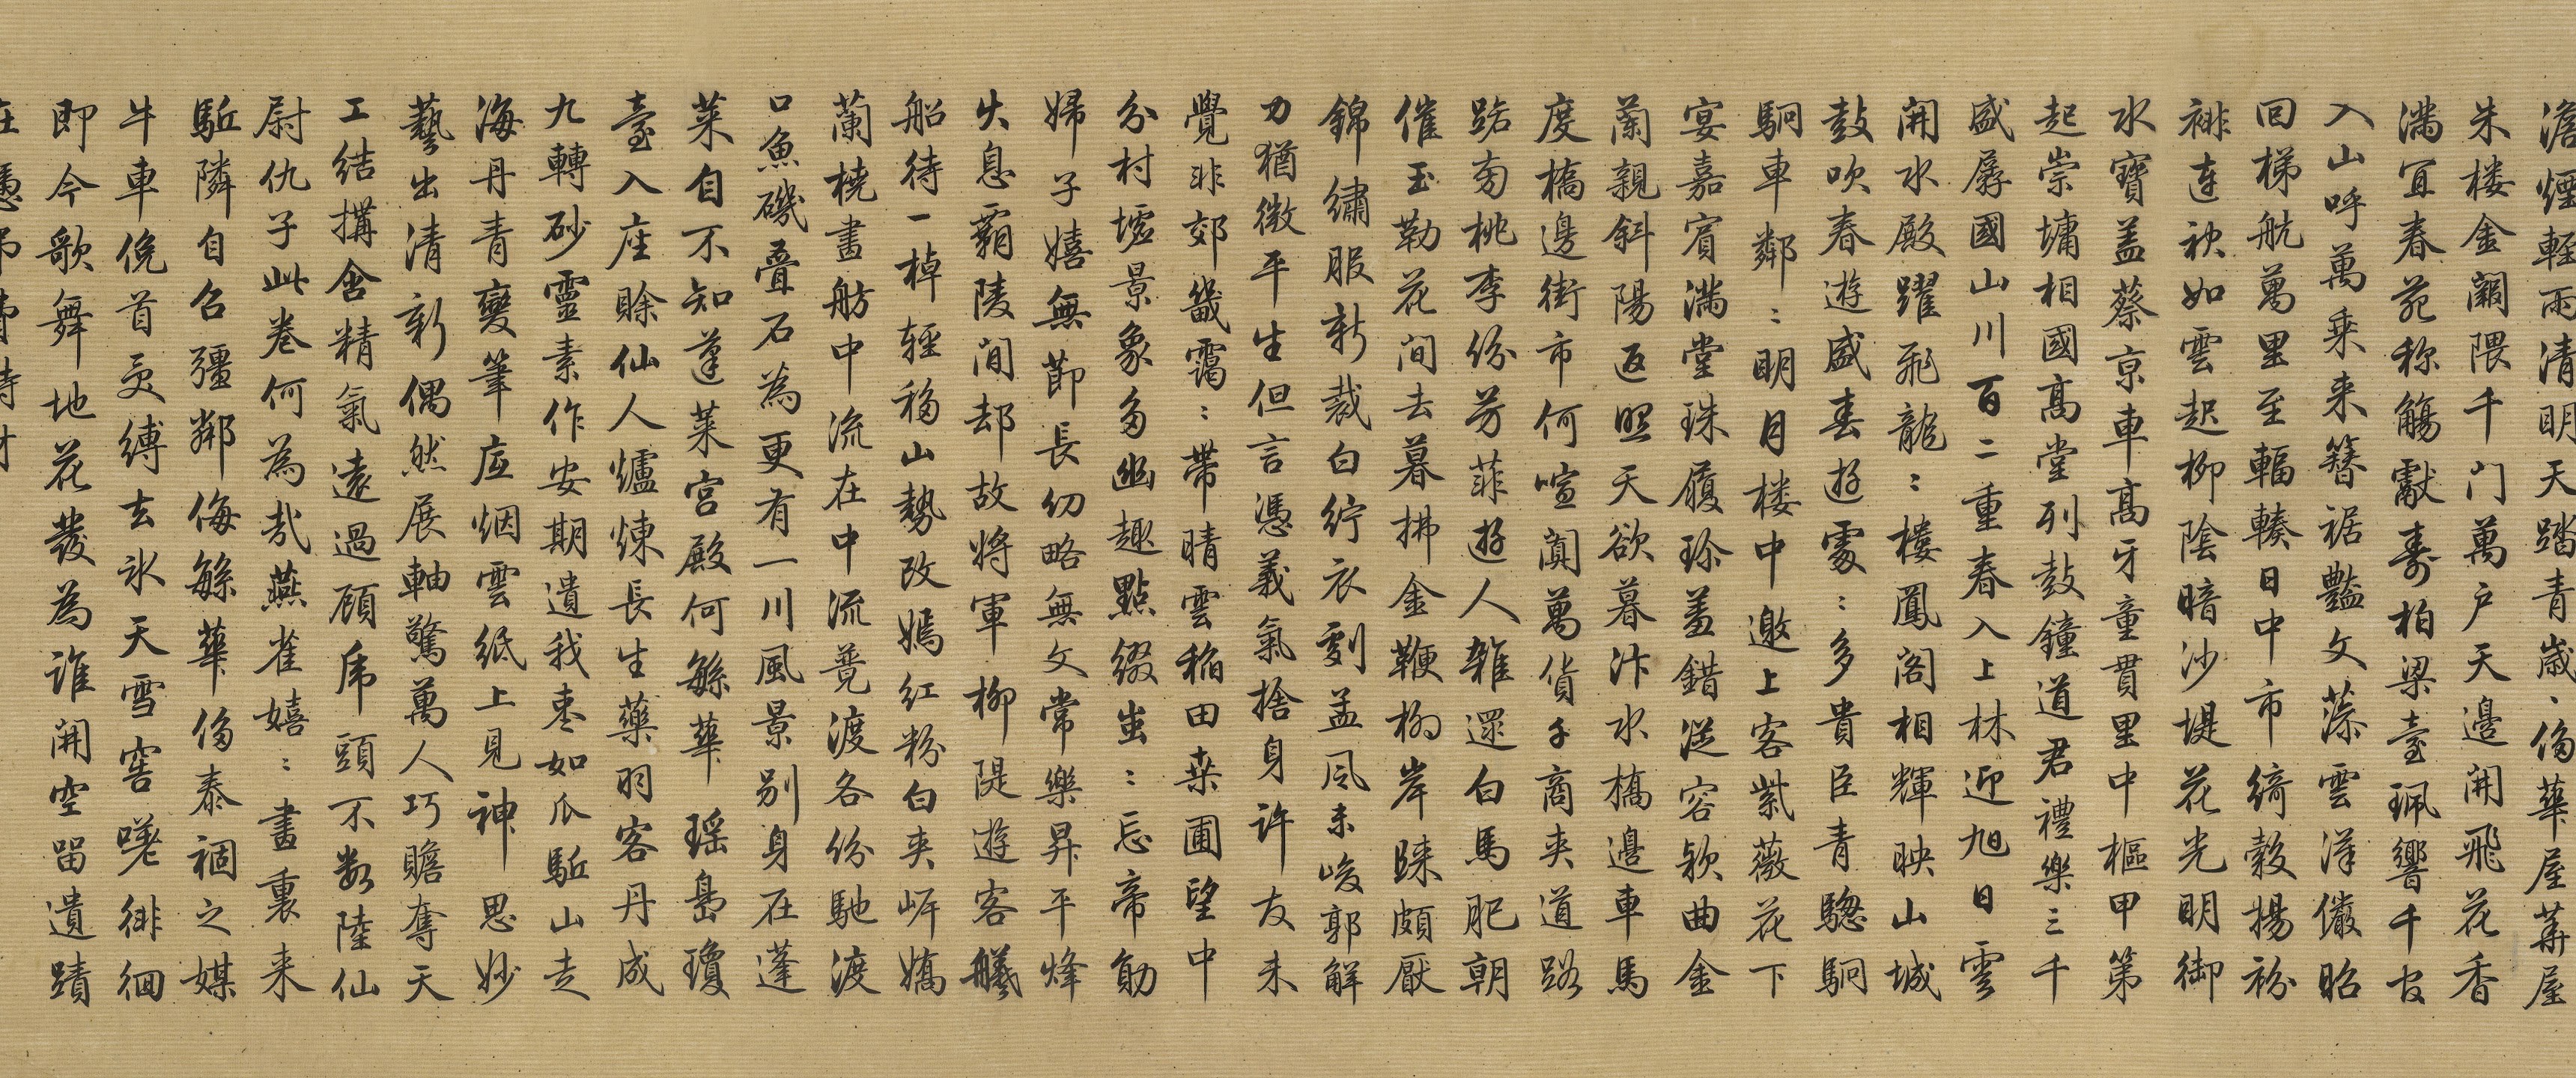 澹煙輕雨清明天踏青歲〻侈華屋華屋
朱楼金闕隈千門萬户天邊開飛花香
滿宜春苑称觴獻壽柏梁臺珮響千官
入山呼萬乘来簪裾豔文藻雲漢儼昭
回梯航萬里至輻輳日中市綺縠揚袗
裶連袂如雲起柳陰暗沙堤花光明御
水寶盖蔡京車高牙童貫里中樞甲第
起崇墉相國高堂列鼓鐘道君禮樂三千
盛孱國山川百二重春入上林迎旭日雲
開水殿躍飛龍〻樓鳳阁相輝映山城
鼓吹春遊盛春遊處〻多貴臣青驄駉
駉車鄰〻明月楼中邀上客紫薇花下
宴嘉賓滿堂珠履珍羞錯從容欵曲金
蘭親斜陽返照天欲暮汴水橋邊車馬
度橋邊街市何喧闐萬貨千商夾道路
路旁桃李份芳菲遊人雜還白馬肥朝
催玉勒花間去暮拂金鞭柳岸歸頗厭
錦繡服新裁白紵衣劇孟風未峻郭解
力猶微平生但言憑義氣捨身許友未
覺非郊畿靄〻帶晴雲稲田桒圃望中
分村墟景象多幽趣點缀蚩〻忘帝勛
婦子嬉無節長幼略無文常樂昇平烽
火息覇陵間却故將軍柳隄遊客艤
船待一棹輕移山勢改嫣红粉白夾岸嬌
蘭橈畫舫中流在中流競渡各份馳渡
口魚磯叠石為更有一川風景别身在蓬
莱自不知蓬莱宮殿何緐華瑶島瓊
臺入座賖仙人爐煉長生藥羽客丹成
九轉砂靈素作安期遺我枣如瓜駈山走
海丹青變筆底烟雲紙上見神思妙
藝出清新偶然展軸驚萬人巧贍奪天
工結搆含精氣遠過顧虎頭不数陸仙
尉仇子此卷何為哉燕雀嬉〻畫裏来
駈隣自召彊鄰侮緐華侈泰禍之媒
牛車俛首受縛去氷天雪窖嘆徘徊
即今歌舞地花發為誰開空留遺蹟